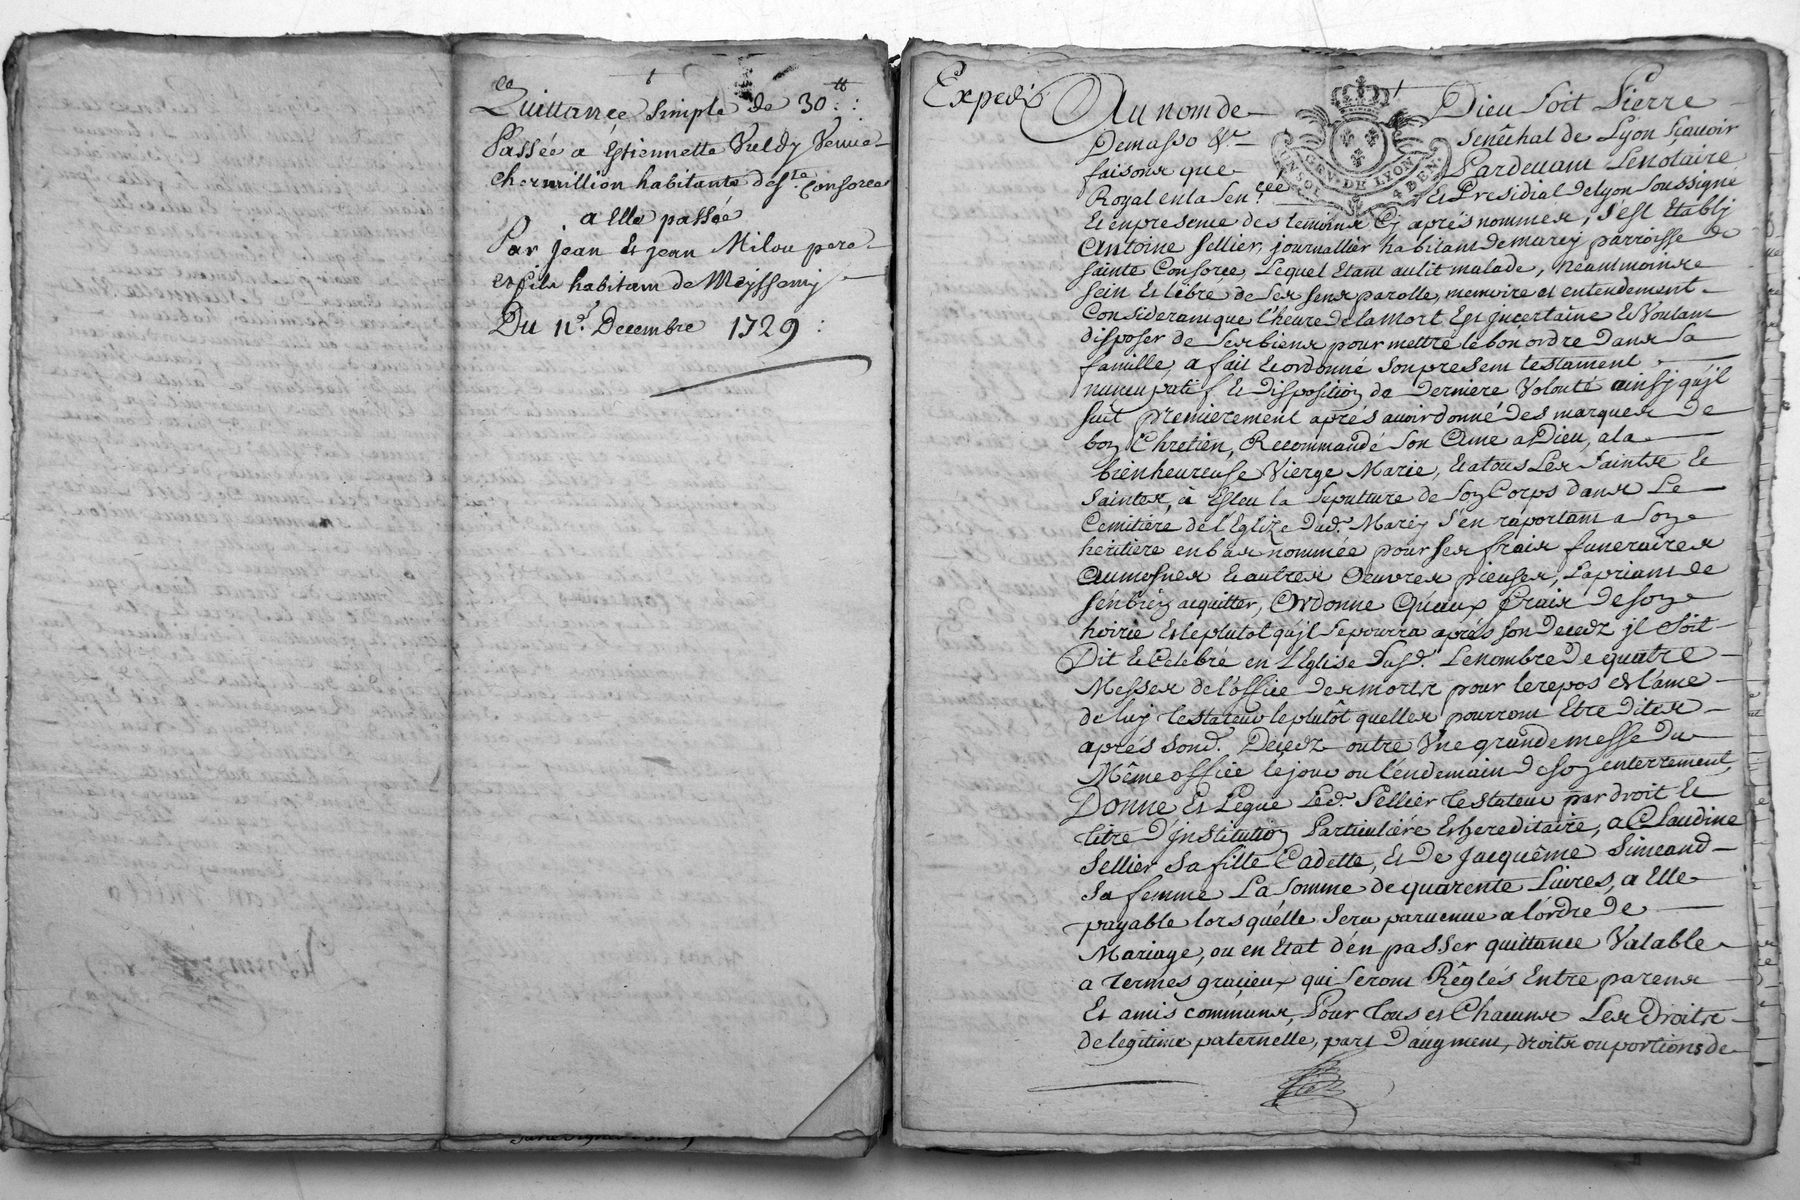 Quittance simple de 30ᵗᵗ :
Passée a Estiennette Vuldy Veuve
Chermillion habitante de Sᵗᵉ Consorce
a Elle passée
Par jean Et jean Milou pere
et fils habitam de Meyssemy
Du 11ᵉ. Decembre 1729 :
Expedié
Au nom de Dieu soit Pierre
Demasso &ᵃ Senéchal de Lyon Sçavoir
faisons que Pardevant Le notaire
Royal en la Sen.ᶜᵉᵉ Et Presidial de lyon Soussigné
GEN. DE LYON
Et en presence des temoins Cy aprés nommez, s'est Etably
Antoine Sellier, journallier habitant de marcy parroisse de
sainte Consorce, Lequel Etant au lit malade, neantmoins
sein Et libre de Ses sens parolle, memoire et entendement
Considerant que l'heure de la Mort Est Jncertaine Et Voulant
disposer de Ses biens pour mettre le bon ordre dans Sa
famille, a fait Et ordonné Son present testament
nuncupatif Et Disposition de Derniere Volonté ainsy qu'jl
suit Premierement aprés avoir donné des marques de
bon Chretien, Recommandé Son Ame a Dieu, a la
bienheureuse Vierge Marie, Et a tous Les Saints Et
Saintes, à Esleu la Sepulture de Son Corps dans Le
Cemitiere de l'Eglize Dud. Marcy S'en raportant a Son
heritiere en bas nommée pour Ses frais funeraires
Aumosnes Et autres Oeuvres pieuses, La priant de
s'en bien acquitter, Ordonne Qu'aux frais de Son
hoirie Et le plutot qu'jl Se pourra aprés Son Decedz jl Soit
Dit Et Celebré en l'Eglise Dusd. Le nombre de quatre
Messes de l'office des morts pour le repos de l'ame
de luy testateur le plutôt quelles pourront Etre dites
aprés Sond. Decedz outre Vne grande messe du
Même office le jour ou l'endemain de Son enterrement,
Donne Et Legue Led. Sellier testateur par droit Et
titre D'jnstitution Particuliére Et hereditaire, a Claudine
Sellier Sa fille Cadette, Et de Jacquême Simeand
Sa femme La Somme de quarente Livres, a Elle
payable lors qu'elle Sera parvenue a l'ordre de
Mariage, ou en Etat d'en passer quittance Valable
a termes gracieux qui Seront Réglés Entre parens
Et amis communs, Pour tous et Chacuns Les droits
de legitime paternelle, part D'augment, droits ou portions de